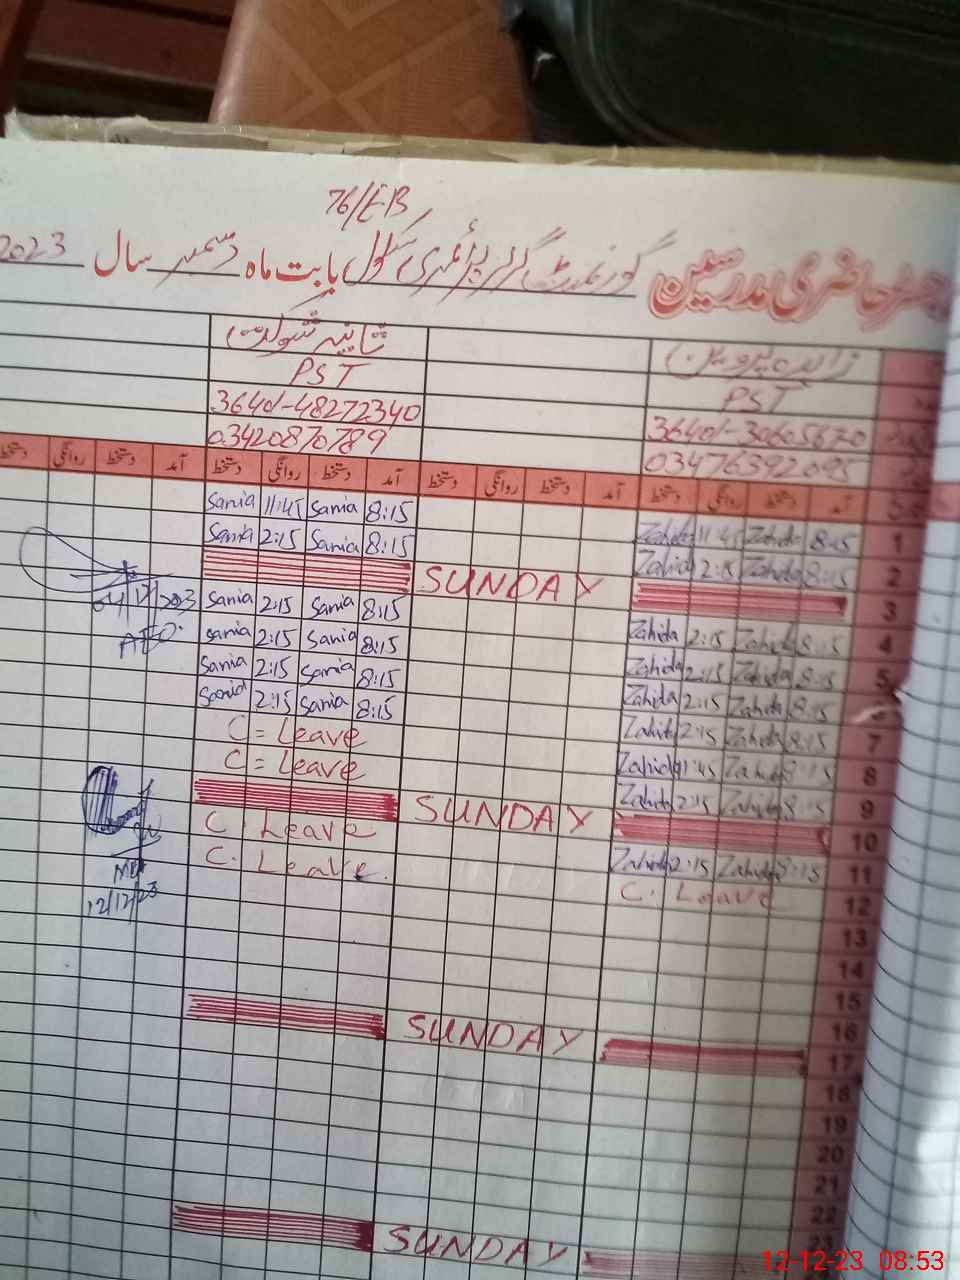 76/EB
رجسٹر حاضری مدرسین گورنمنٹ گرلز پرائمری سکول بابت ماہ دسمبر سال 2023
زاہدہ پروین ثانیہ شوکت
PST PST
03476392095 03420870789
آمد دستخط روانگی دستخط آمد دستخط روانگی دستخط آمد دستخط روانگی دستخط
1 8:15 Zahida 11:45 Zahida 8:15 Sania 11:45 Sania
2 8:15 Zahida 2:15 Zahida 8:15 Sania 2:15 Sania
3 SUNDAY
4 8:15 Zahida 2:15 Zahida 8:15 Sania 2:15 Sania 04/12/2023
5 8:15 Zahida 2:15 Zahida 8:15 Sania 2:15 Sania AEO
8:15 Zahida 2:15 Zahida 8:15 Sania 2:15 Sania
7 8:15 Zahida 2:15 Zahida 8:15 Sania 2:15 Sania
8 8:15 Zahida 1:45 Zahida C = Leave
9 8:15 Zahida 2:15 Zahida C = Leave
10 SUNDAY
11 8:15 Zahida 2:15 Zahida C. Leave
12 C. Leave C. Leave 12/12/23
13
14
15
16
17 SUNDAY
18
19
20
21
22
23
SUNDAY
12-12-23 08:53